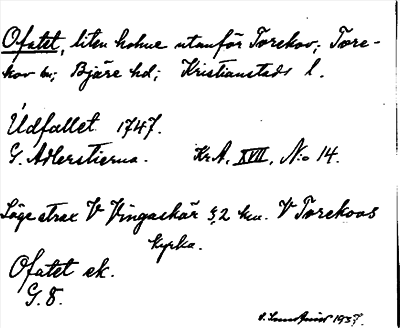 Ofatet, liten holme utanför Torekov; Tore-
kov sn; Bjäre hd; Kristianstads l.
Udfallet 1747.
G. Adlerstierna. Kr. A. XVII, N:o 14.
Läge strax V Vingaskär 3,2 km. V Torekovs
kyrka.
Ofatet sk.
G. 8.
1937.